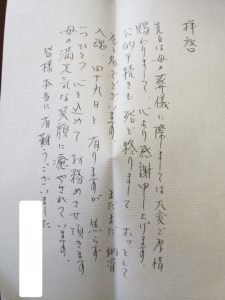 拝啓
先日は母の葬儀に際しましては大変ご厚情
賜わりまして 心より感謝申し上げます。
公的手続きも 殆ど終りまして ホッとして
居る処でございます まだまだ 納骨
入魂 四十九日と 有りますが 焦らず
一つひとつ心を込めて お務めさせて頂きます
母の満足気な笑顔に 癒やされて います
皆様本当に有難うございました